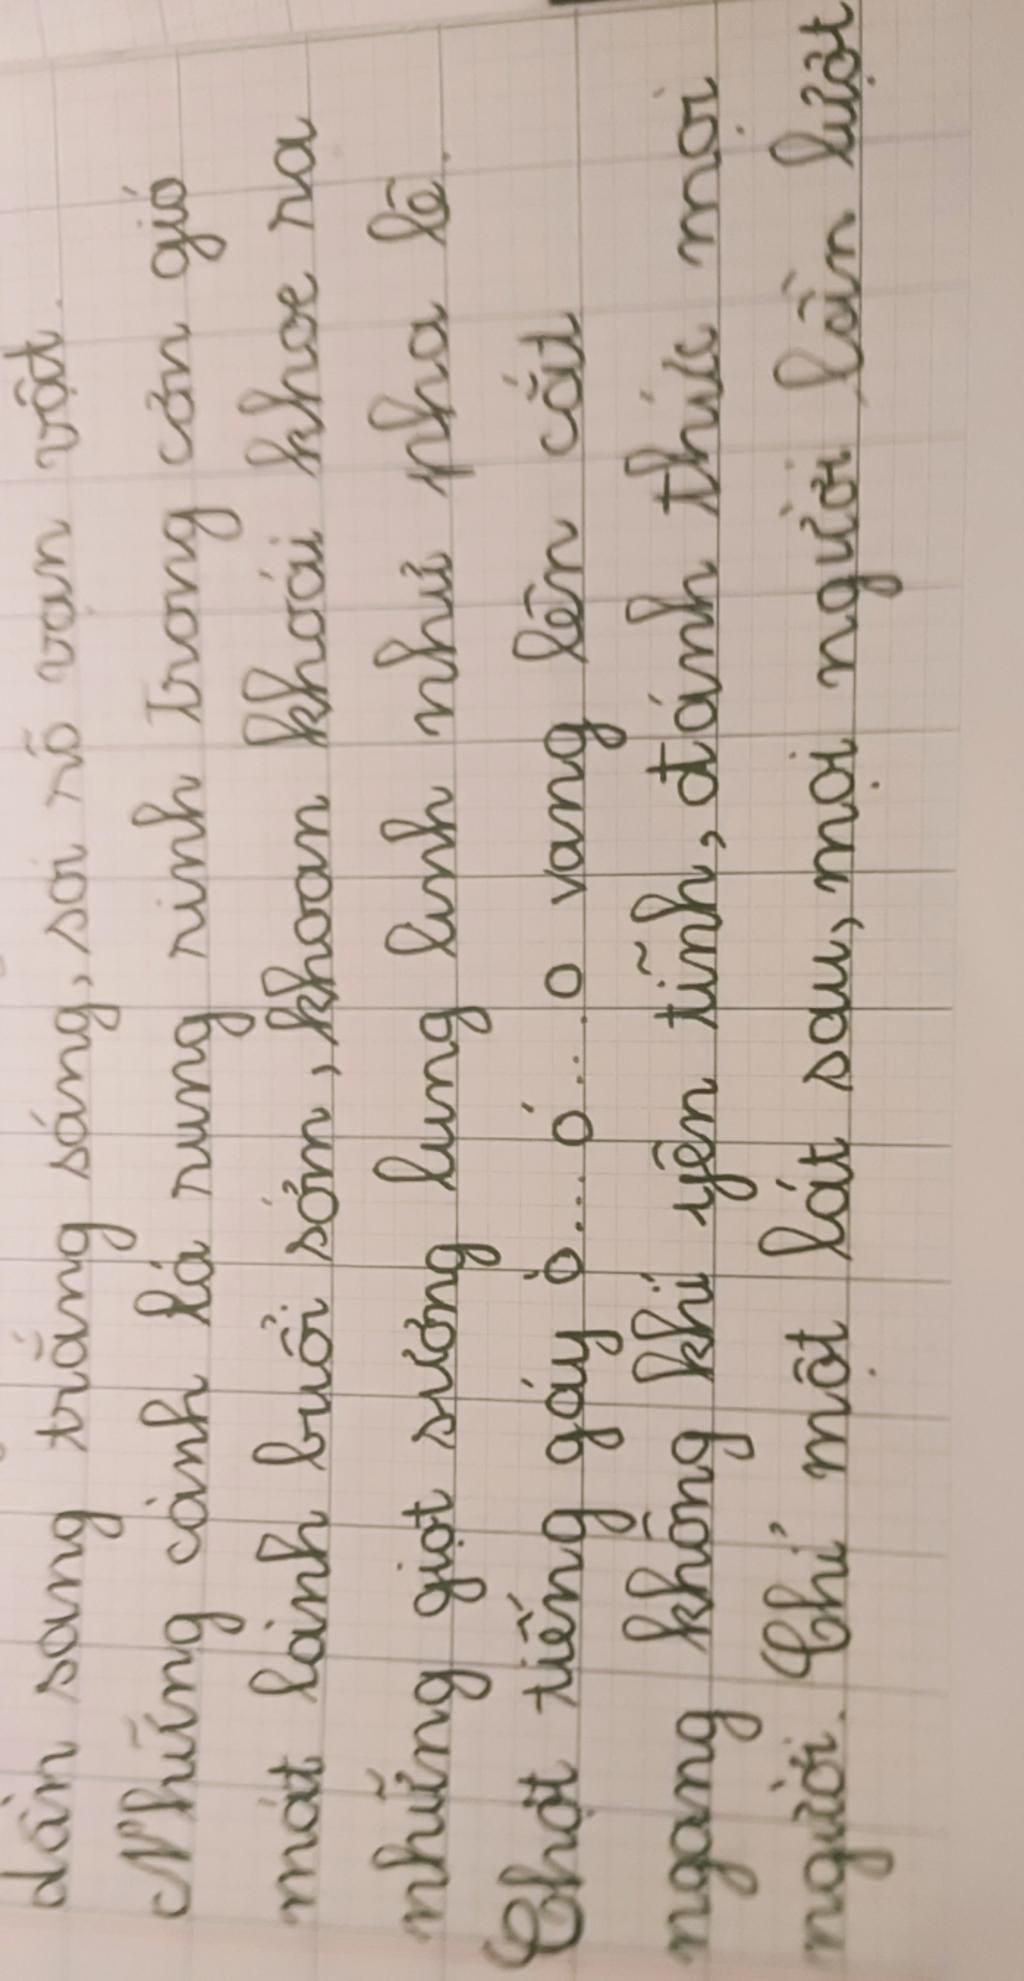 dần sang trắng sáng, soi rõ vạn vật.
Những cành lá rung rinh trong cơn gió
mát lành buổi sớm, khoan khoái khoe ra
những giọt sương lung linh như pha lê.
Chợt tiếng gáy ò... ó... o vang lên cắt
ngang không khí yên tĩnh, đánh thức mọi
người. Chỉ một lát sau, mọi người lần lượt